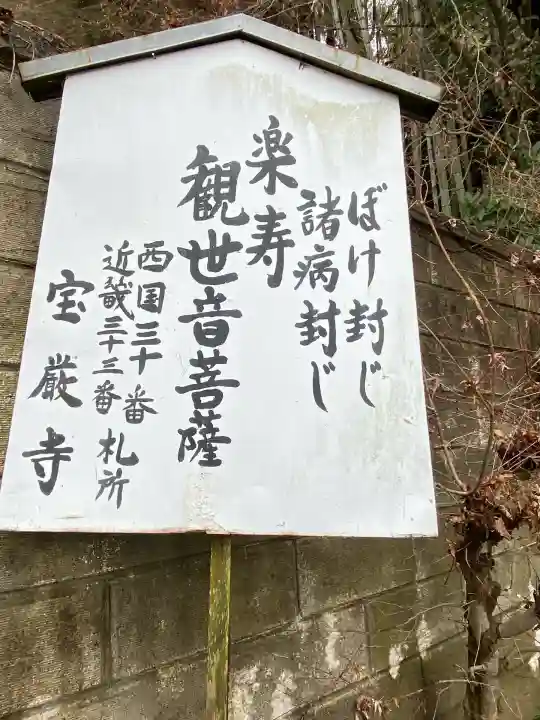 ぼけ封じ
諸病封じ
楽寿
観世音菩薩
西国三十番
近畿三十三番札所
宝厳寺